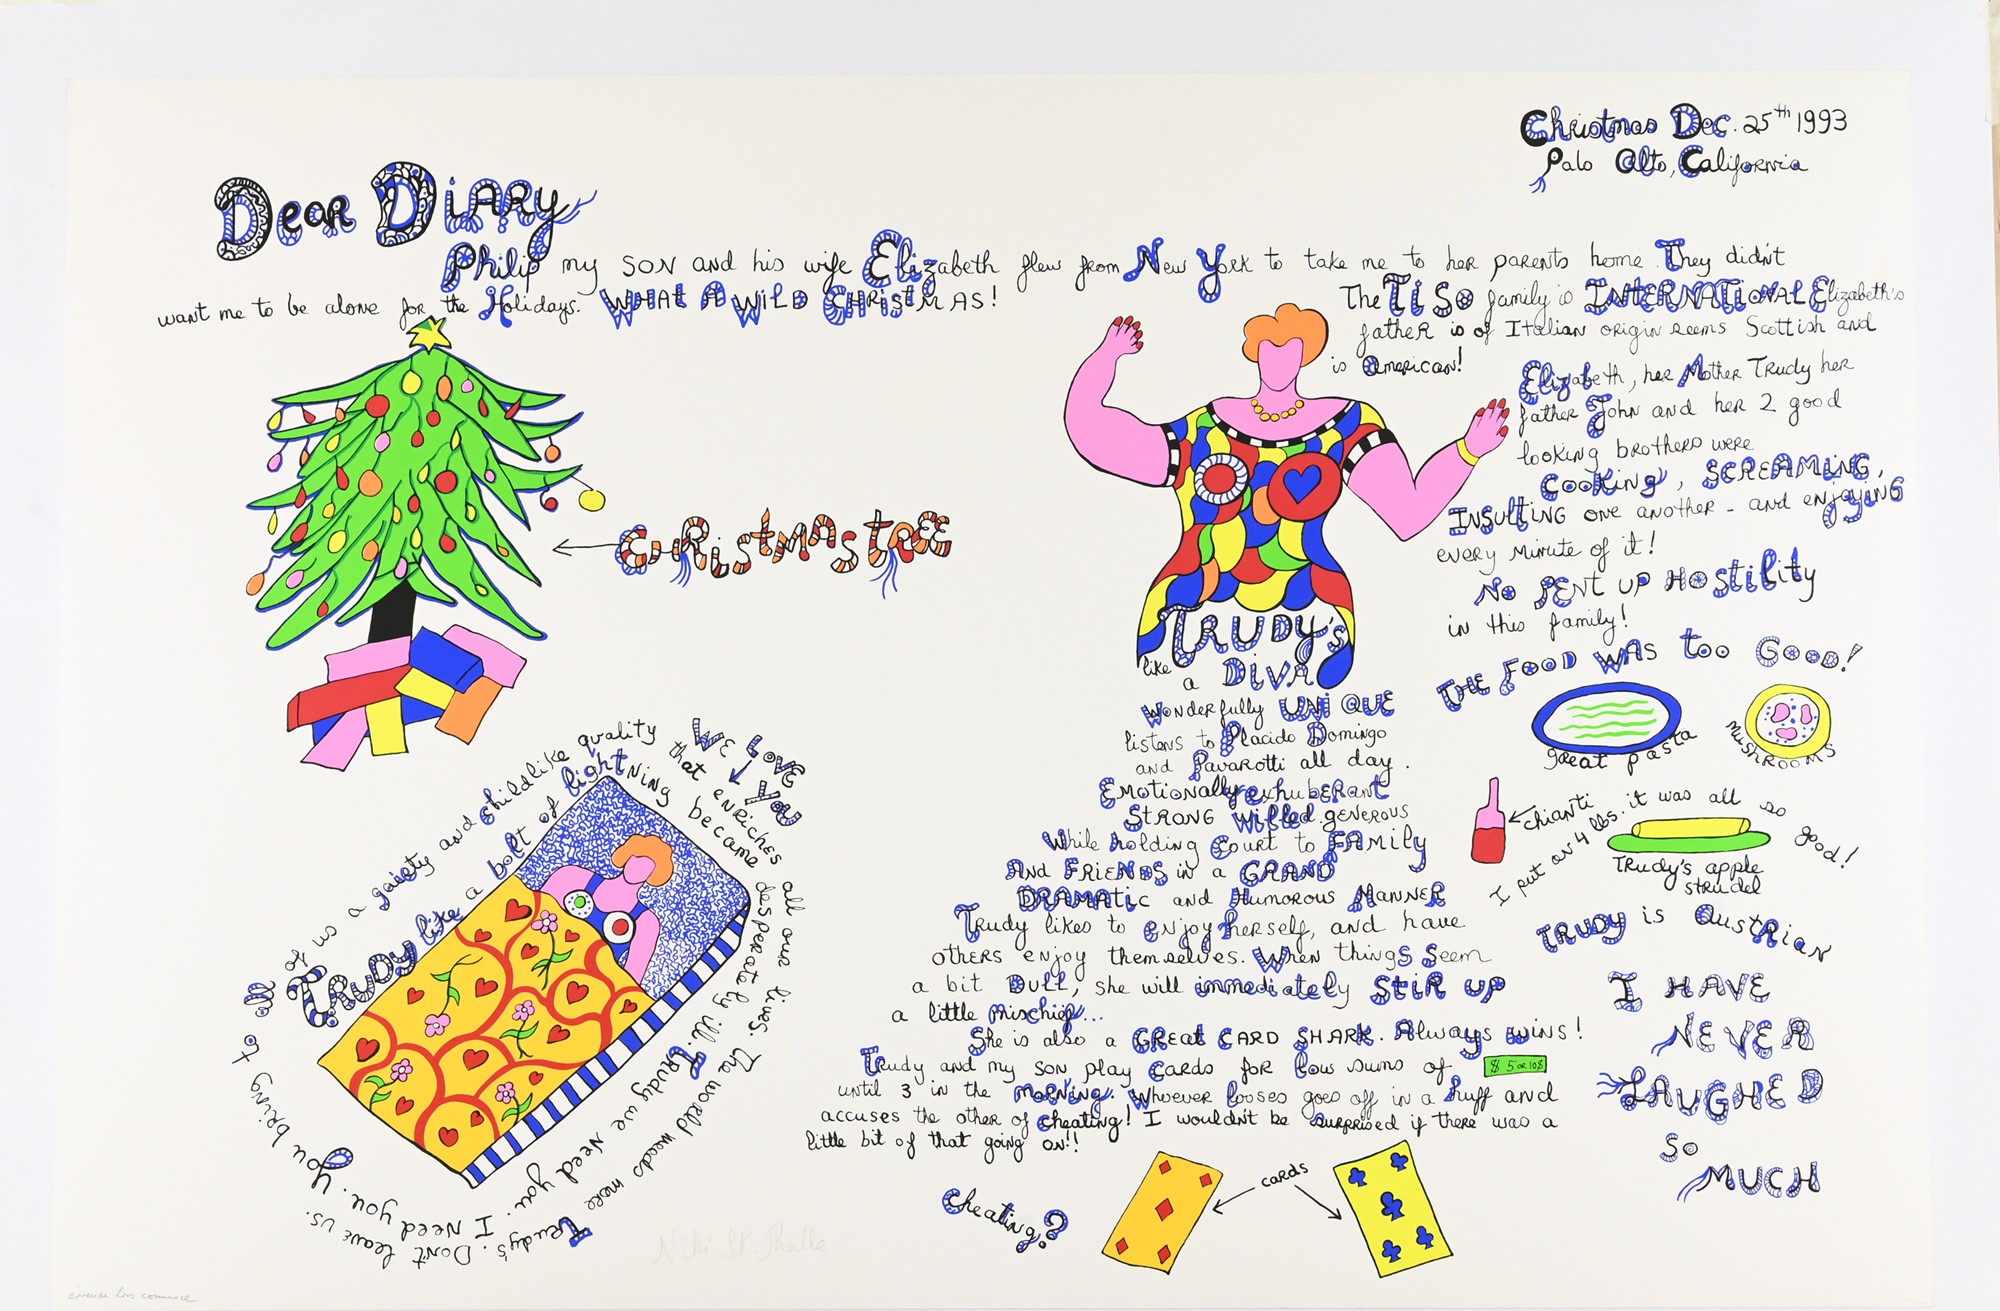 Christmas Dec. 25th 1993
Palo Alto, California
Dear Diary
Philip my son and his wife Elizabeth flew from New York to take me to her parents home. They didn't
want me to be alone for the Holidays. WHAT A WILD CHRISTMAS!
The TISO family is INTERNATIONAL Elizabeth's
father is of Italian origin seems Scottish and
is american!
Elizabeth, her Mother Trudy her
father John and her 2 good
looking brothers were
Cooking, SCREAMING,
INSULTING one another - and enjoying
every minute of it!
No PENT UP HOSTILITY
in this family!
CHRISTMAS TREE
THE FOOD WAS too GOOD!
great pasta
MUSHROOMS
chianti
I put on 4 lbs. it was all so good!
Trudy's apple
strudel
TRUDY is Austrian
I HAVE
NEVER
LAUGHED
So
MUCH
TRUDY's
like
a DIVA
Wonderfully UNIQUE
listens to Placido Domingo
and Pavarotti all day.
Emotionally exhuberant
STRONG Willed generous
While holding Court to FAMily
And FRIENDS in a GRAND
DRAMATic and Humorous MANNER
Trudy likes to enjoy herself, and have
others enjoy themselves. When things seem
a bit Dull, she will immediately STIR UP
a little mischief...
She is also a GREAT CARD SHARK. Always wins!
Trudy and my son play cards for low sums of $ 5 or 10$
until 3 in the MORNING. Whoever looses goes off in a huff and
accuses the other of cheating! I wouldn't be surprised if there was a
little bit of that going on!!
Cheating?
cards
WE LOVE
YOU
TRUDY like a bolt of lightning became desperately ill. TRUDY we Need you. I Need you.
You bring to all of us a gaiety and childlike quality that enriches all our lives. The world needs more Trudy's. Don't leave us.
Niki St. Phalle
épreuve hors commerce